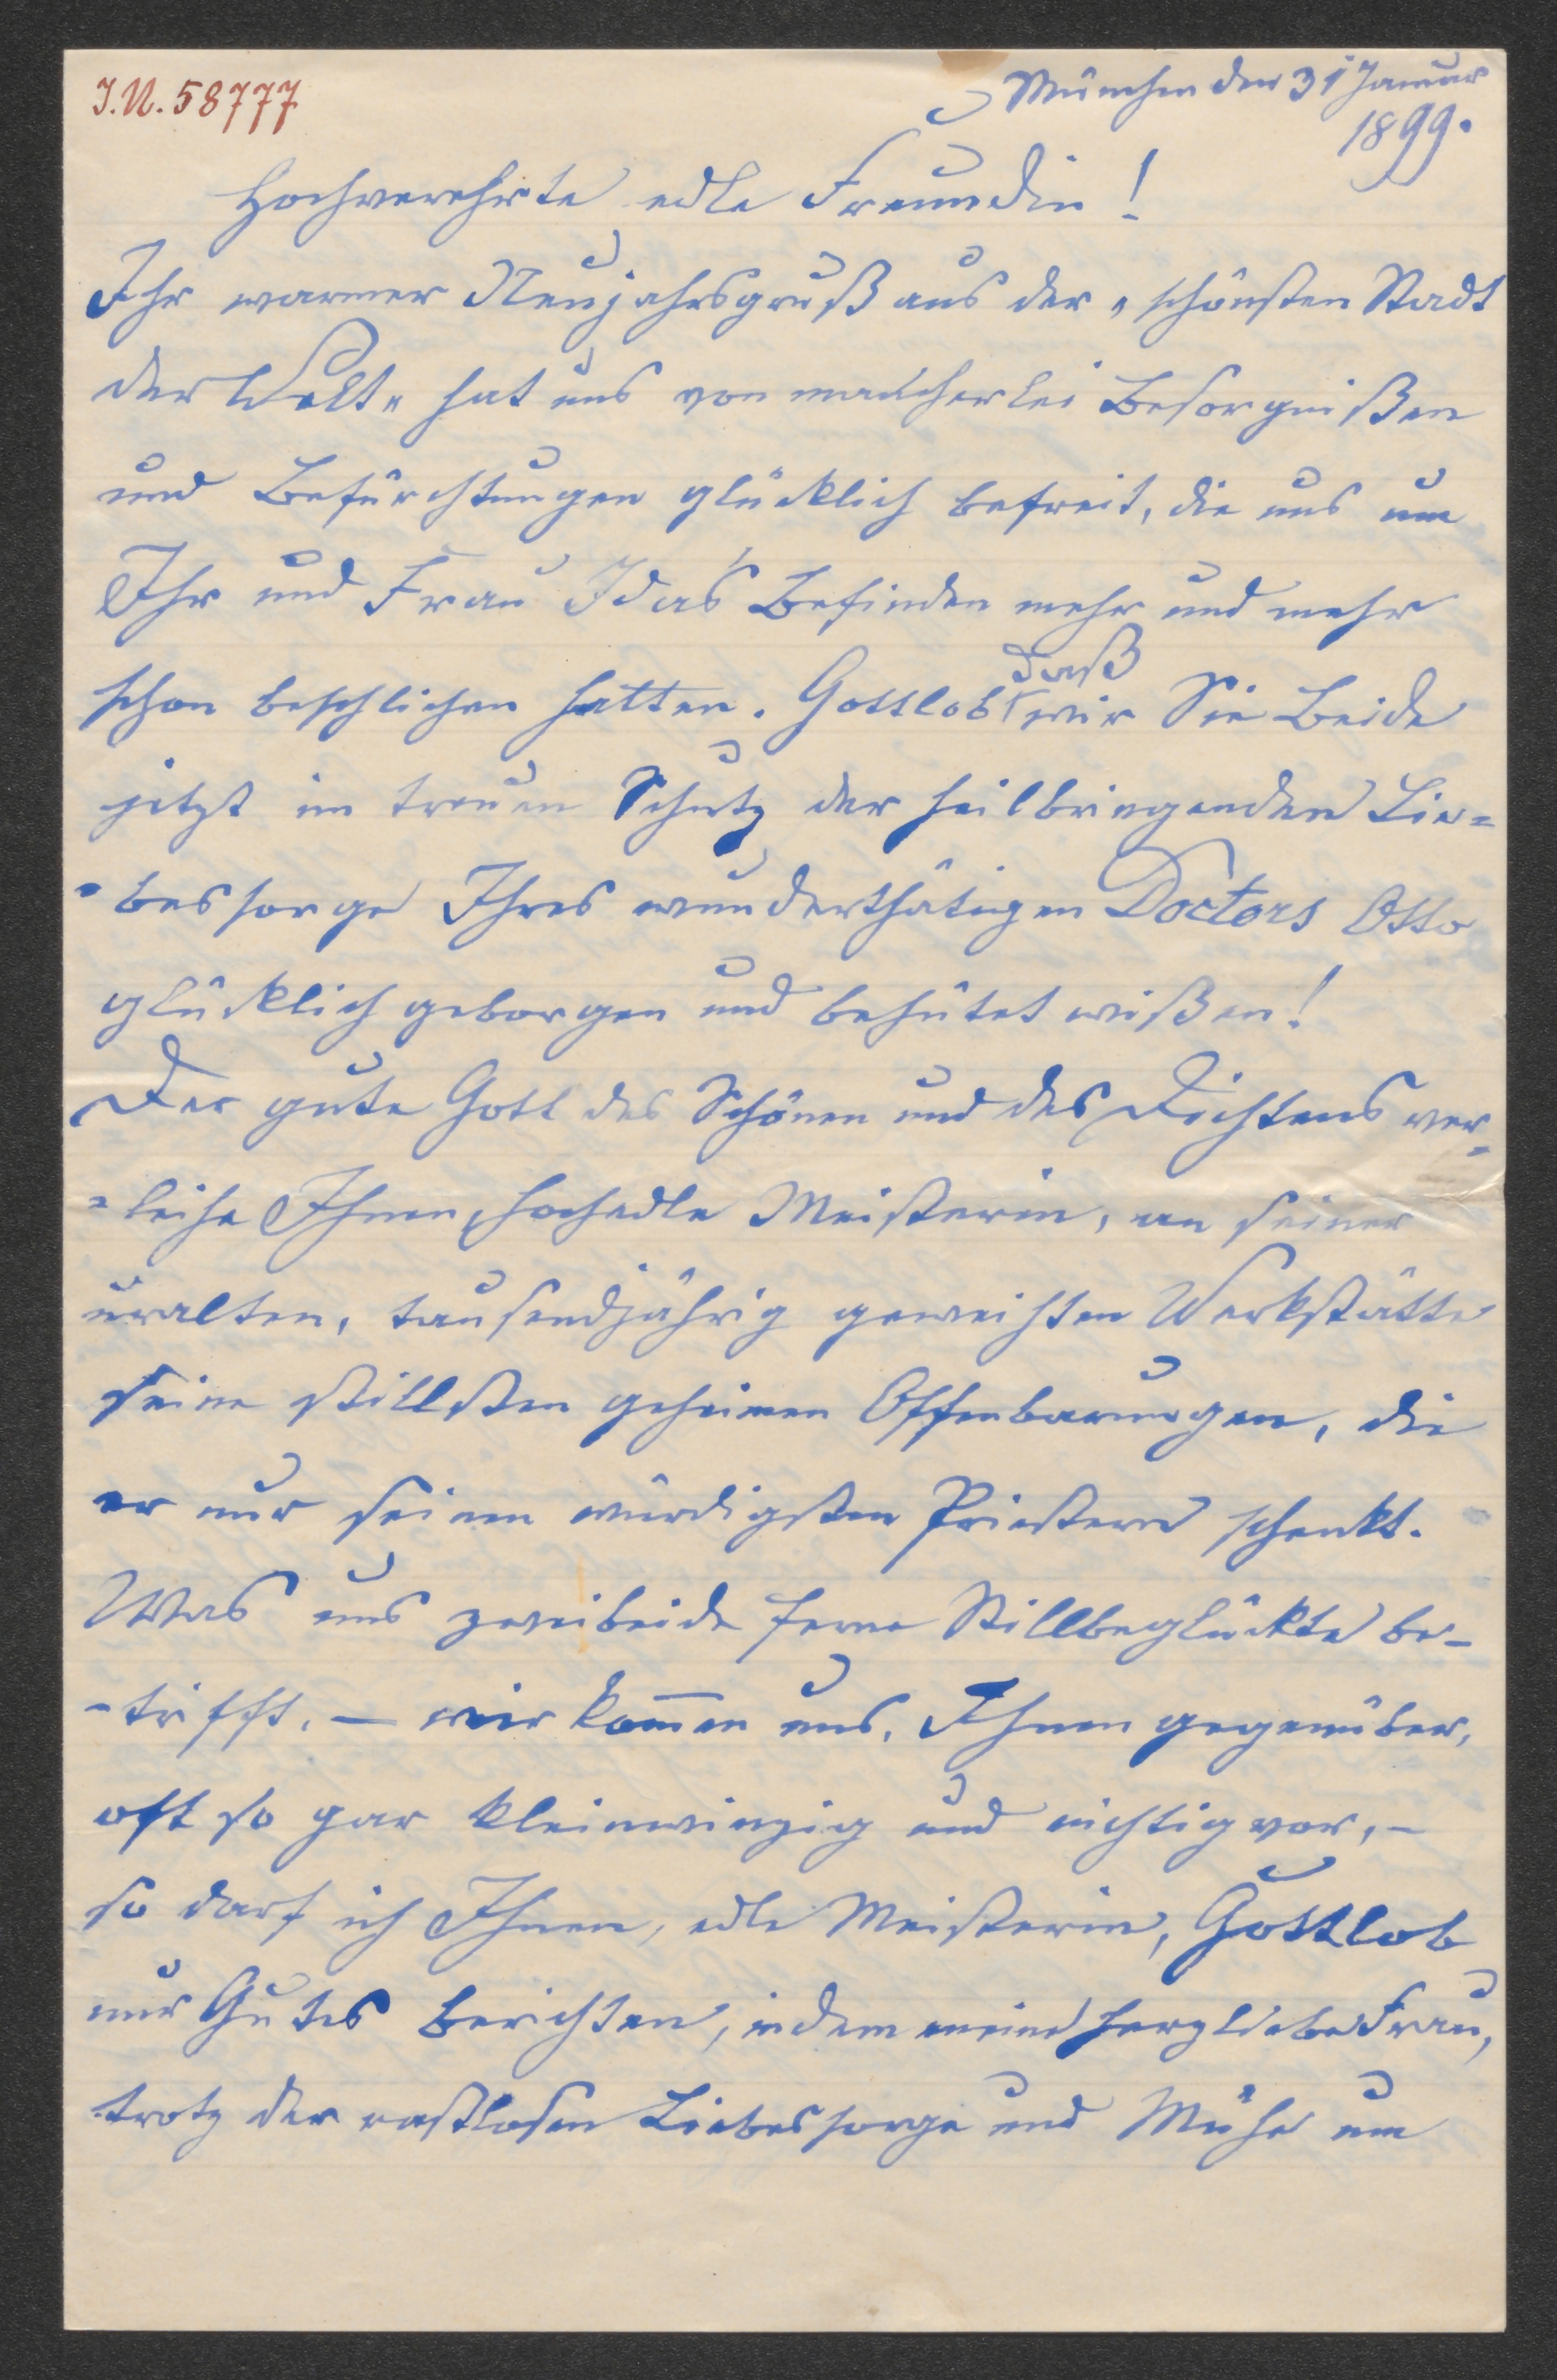 J.N. 58777
München den 31 Januar
1899.
Hochverehrte edle Freundin!
Ihr warmer Neujahrsgruß aus der „schönsten Stadt
der Welt“ hat uns von mancherlei Besorgnißen
und Befürchtungen glücklich befreit, die uns um
Ihr und Frau Ida's Befinden mehr und mehr
schon beschlichen hatten. Gottlob daß wir Sie Beide
jetzt im treuen Schutz der heilbringenden Lie=
=bessorge Ihres wunderthätigen Doctors Otto
glücklich geborgen und behütet wißen!
Der gute Gott des Schönen und des Dichtens ver=
=leihe Ihnen, hochedle Meisterin, an seiner
uralten, tausendjährig geweihten Werkstätte
seine stillsten geheimen Offenbarungen, die
er nur seinen würdigsten Priestern schenkt.
Was uns zweibeide ferne Stillbeglückte be-
-trifft, — wir kom̄en uns, Ihnen gegenüber,
oft so gar kleinwinzig und nichtig vor, –
so darf ich Ihnen, edle Meisterin, Gottlob
nur Gutes berichten, indem meine herzliebe Frau,
trotz der rastlosen Liebessorge und Mühe um